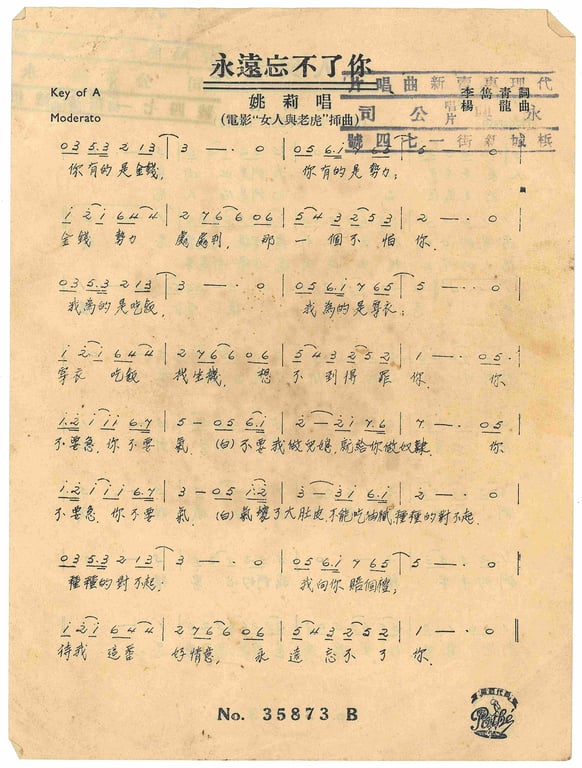 永遠忘不了你
Key of A
Moderato
姚莉唱
(電影"女人與老虎"插曲)
李雋青詞
楊龍曲
代理專賣新曲唱片
永 公司
唱片
檳城新街一七四號
0 3 5.3 2 1 3 | 3 — · 0 | 0 5 6.1 7 6 5 | 5 — · 0
你有的是金錢, 你有的是勢力;
1 2 1 6 4 4 | 2 7 6 6 0 6 | 5 4 3 2 5 3 | 2 — · 0
金錢 勢力 處處到, 那 一 個不 怕 你.
0 3 5.3 2 1 3 | 3 — · 0 | 0 5 6.1 7 6 5 | 5 — · 0
我為的是吃飯, 我為的是穿衣;
1 2 1 6 4 4 | 2 7 6 6 0 6 | 5 4 3 2 5 2 | 1 — · 0 5.
穿衣 吃飯 找生機, 想 不 到得 罪 你. 你
1.2 1 1 1 6.7 | 5 — 0 5 6.1 | 2 — 2 1 7.6 | 7 — · 0 5
不要急, 你不要 氣. (白) 不要我做兒媳, 就給你做奴隸. 你
1.2 1 1 1 6.7 | 3 — 0 5 1.2 | 3 — 3 1 6.1 | 2 — · 0
不要急, 你不要 氣. (白) 氣壞了大肚皮不能吃油膩, 種種的對不起.
0 3 5.3 2 1 3 | 3 — · 0 | 0 5 6.1 7 6 5 | 5 — · 0
種種的對不起. 我向你賠個禮;
1 2 1 6 4 4 | 2 7 6 6 0 6 | 5 4 3 2 5 2 | 1 — · 0
待我 這番 好情意, 永 遠 忘不 了 你.
No. 35873 B
Pathé